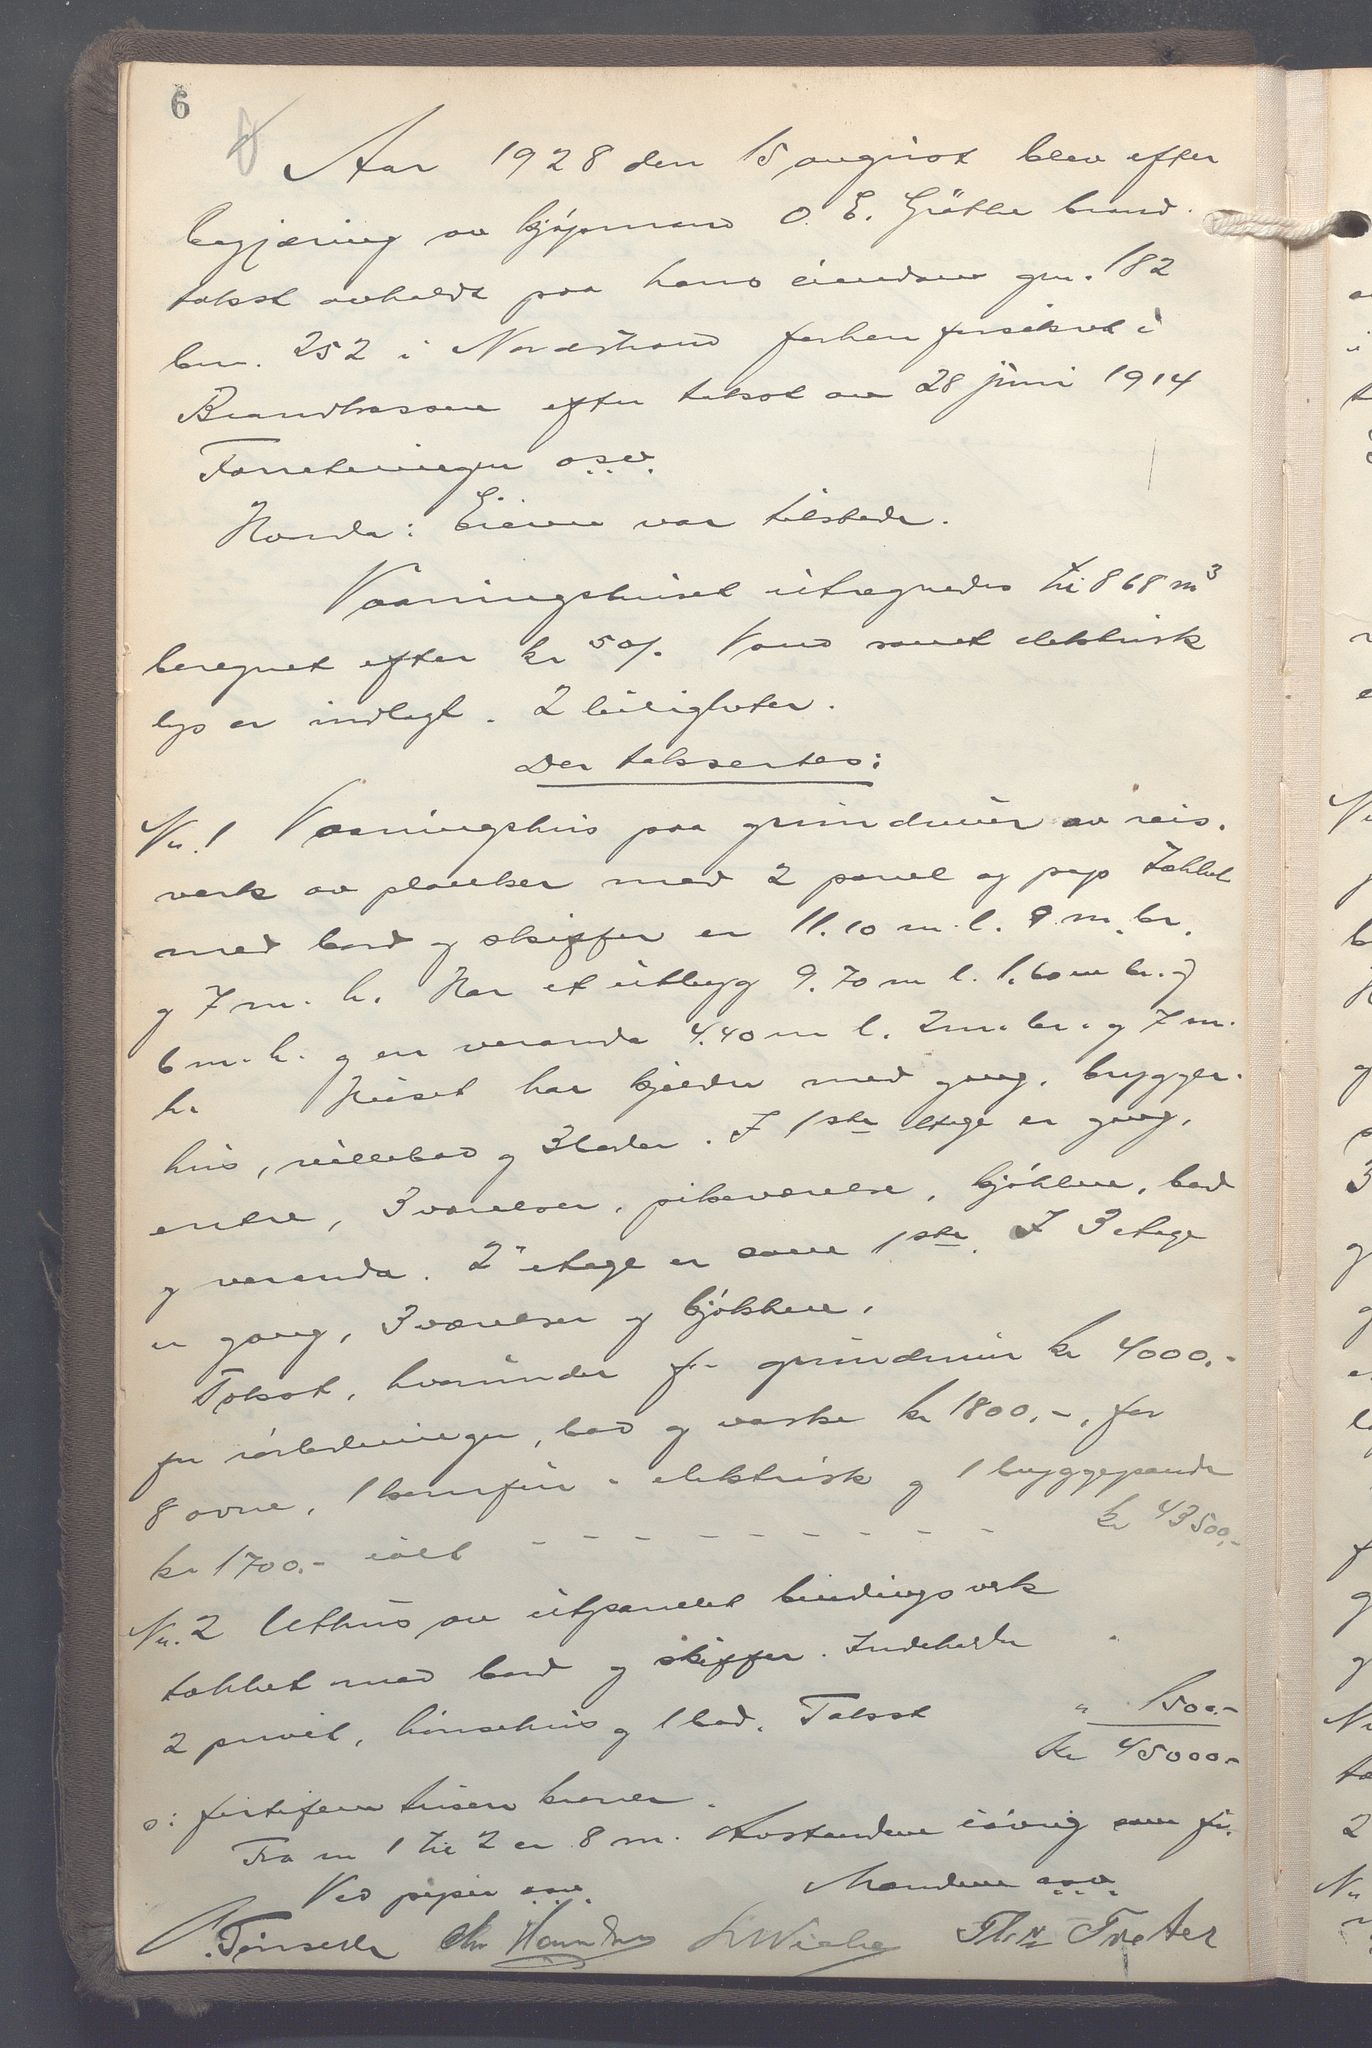 6
Aar 1928 den 15 august blev efter
begjæring av kjøpmand O. E. Gröthe brand-
takst avholdt paa hans eiendom gnr. 182
bnr. 252 i Nordstrand forhen forsikret i
Brandkassen efter takst av 28 juni 1914
Forretningen o.s.v.
Herda: Eieren var tilstede.
Vaaningshuset utregnedes til 868 m³
beregnet efter kr 50/. Vand samt elektrisk
lys er indlagt. 2 leiligheter.
Der taksertes:
Nr. 1 Vaaningshus paa grundmur av reis-
verk av planker med 2 panel og pap Tækket
med bord og skiffer er 11.10 m. l. 9 m. br.
og 7 m. h. Har et utbyg 9.70 m l. 1.60 m br. og
6 m. h. og en veranda 4.40 m l. 2 m. br. og 7 m.
h. Huset har kjelder med gang, brygger-
hus, rullebod og 3 boder. I 1ste etage er gang,
entre, 3 værelser, pikeværelse, kjøkken, bad
og veranda. 2" etage er som 1ste. I 3 etage
er gang, 3 værelser og kjøkken.
Takst, herunder for grundmur kr 4000.-
for rørledninger, bad og vaske kr 1800.-, for
8 ovne, 1 komfur - elektrisk og 1 bryggepande
kr 1700.- ialt - - - - - - - - - - kr 43500.-
Nr. 2 Uthus av utpanelet bindingsverk
tækket med bord og skiffer. Indeholder
2 privet, hønsehus og 1 bod. Takst " 1500.-
kr 45000.-
o: förtifem tusen kroner.
Fra nr 1 til 2 er 8 m. Avstandene iøvrig som før.
Ved piper o.s.v. Mændene o.s.v.
Tønseth Chr Wiche Th. Treter